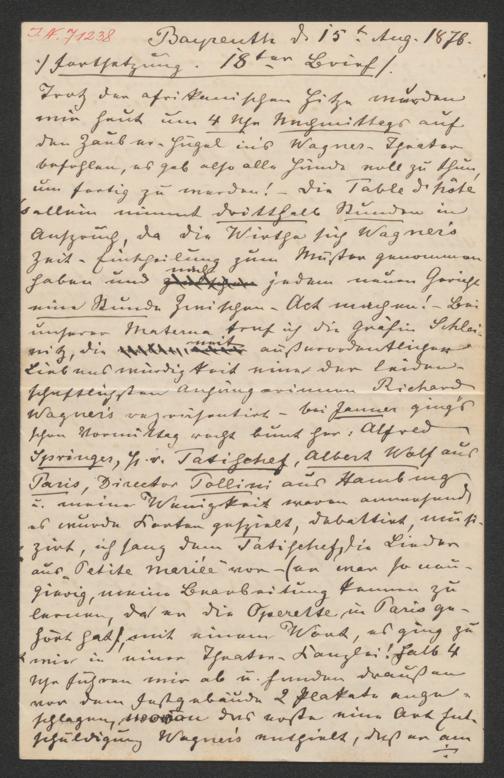 I.N. 71238
Bayreuth d. 15ᵗ Aug. 1876.
·/ Fortsetzung. 18ter Brief /.
Trotz der afrikanischen Hitze wurden
wir heut um 4 Uhr Nachmittags auf
den Zauber-Hügel in's Wagner-Theater
befohlen, es gab also alle Hände voll zu thun,
um fertig zu werden! – Die Table d'hôte
allein nimmt dritthalb Stunden in
Anspruch, da die Wirthe sich Wagner's
Zeit-Eintheilung zum Muster genommen
haben und nach jedem neuen Gericht
eine Stunde Zwischen-Act machen! – Bei
unserer Materna traf ich die Gräfin Schlei-
nitz, die mit außerordentlicher
Liebenswürdigkeit eine der leiden-
schaftlichsten Anhängerinnen Richard
Wagner's repräsentirt – bei Jauner ging's
schon Vormittag recht bunt her: Alfred
Springer, H. v. Tatischef, Albert Wolf aus
Paris, Director Pollini aus Hamburg
u. meine Wenigkeit waren anwesend
es wurde Karten gespielt, debattirt, musi-
zirt, ich sang dem Tatischef, die Lieder
aus "Petite mariée" vor – (er war so neu-
gierig, meine Bearbeitung kennen zu
lernen, da er die Operette in Paris ge-
hört hat), mit einem Wort, es ging zu
wie in einer Theater-Kanzlei! Halb 4
Uhr fuhren wir ab u. fanden draußen
vor dem Festgebäude 2 Plakate ange-
schlagen, woran das erste eine Art Ent-
schuldigung Wagner's enthielt, daß er am